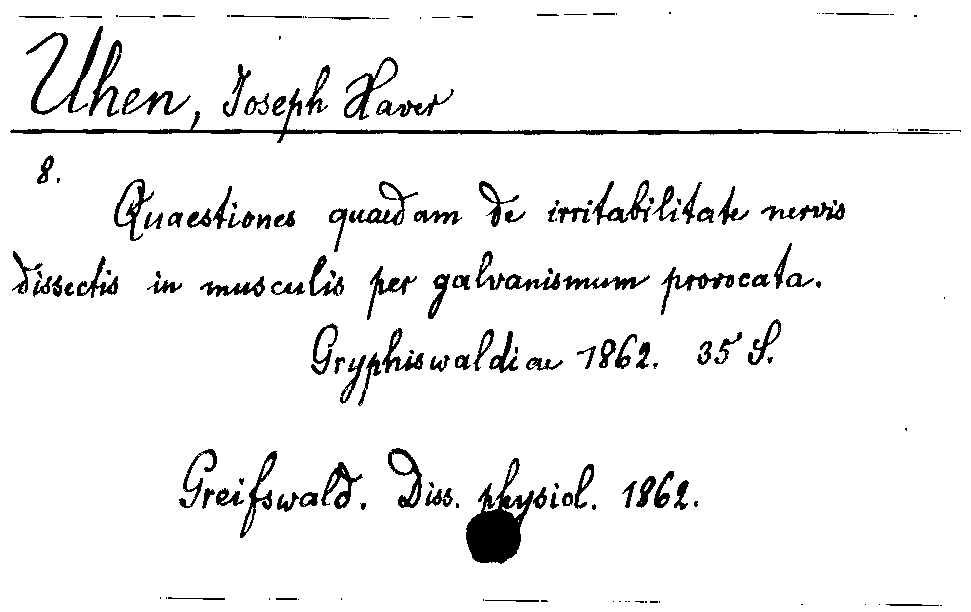 Uhen, Joseph Xaver
8.
Quaestiones quaedam de irritabilitate nervis
dissectis in musculis per galvanismum provocata.
Gryphiswaldiae 1862. 35 S.
Greifswald. Diss. physiol. 1862.